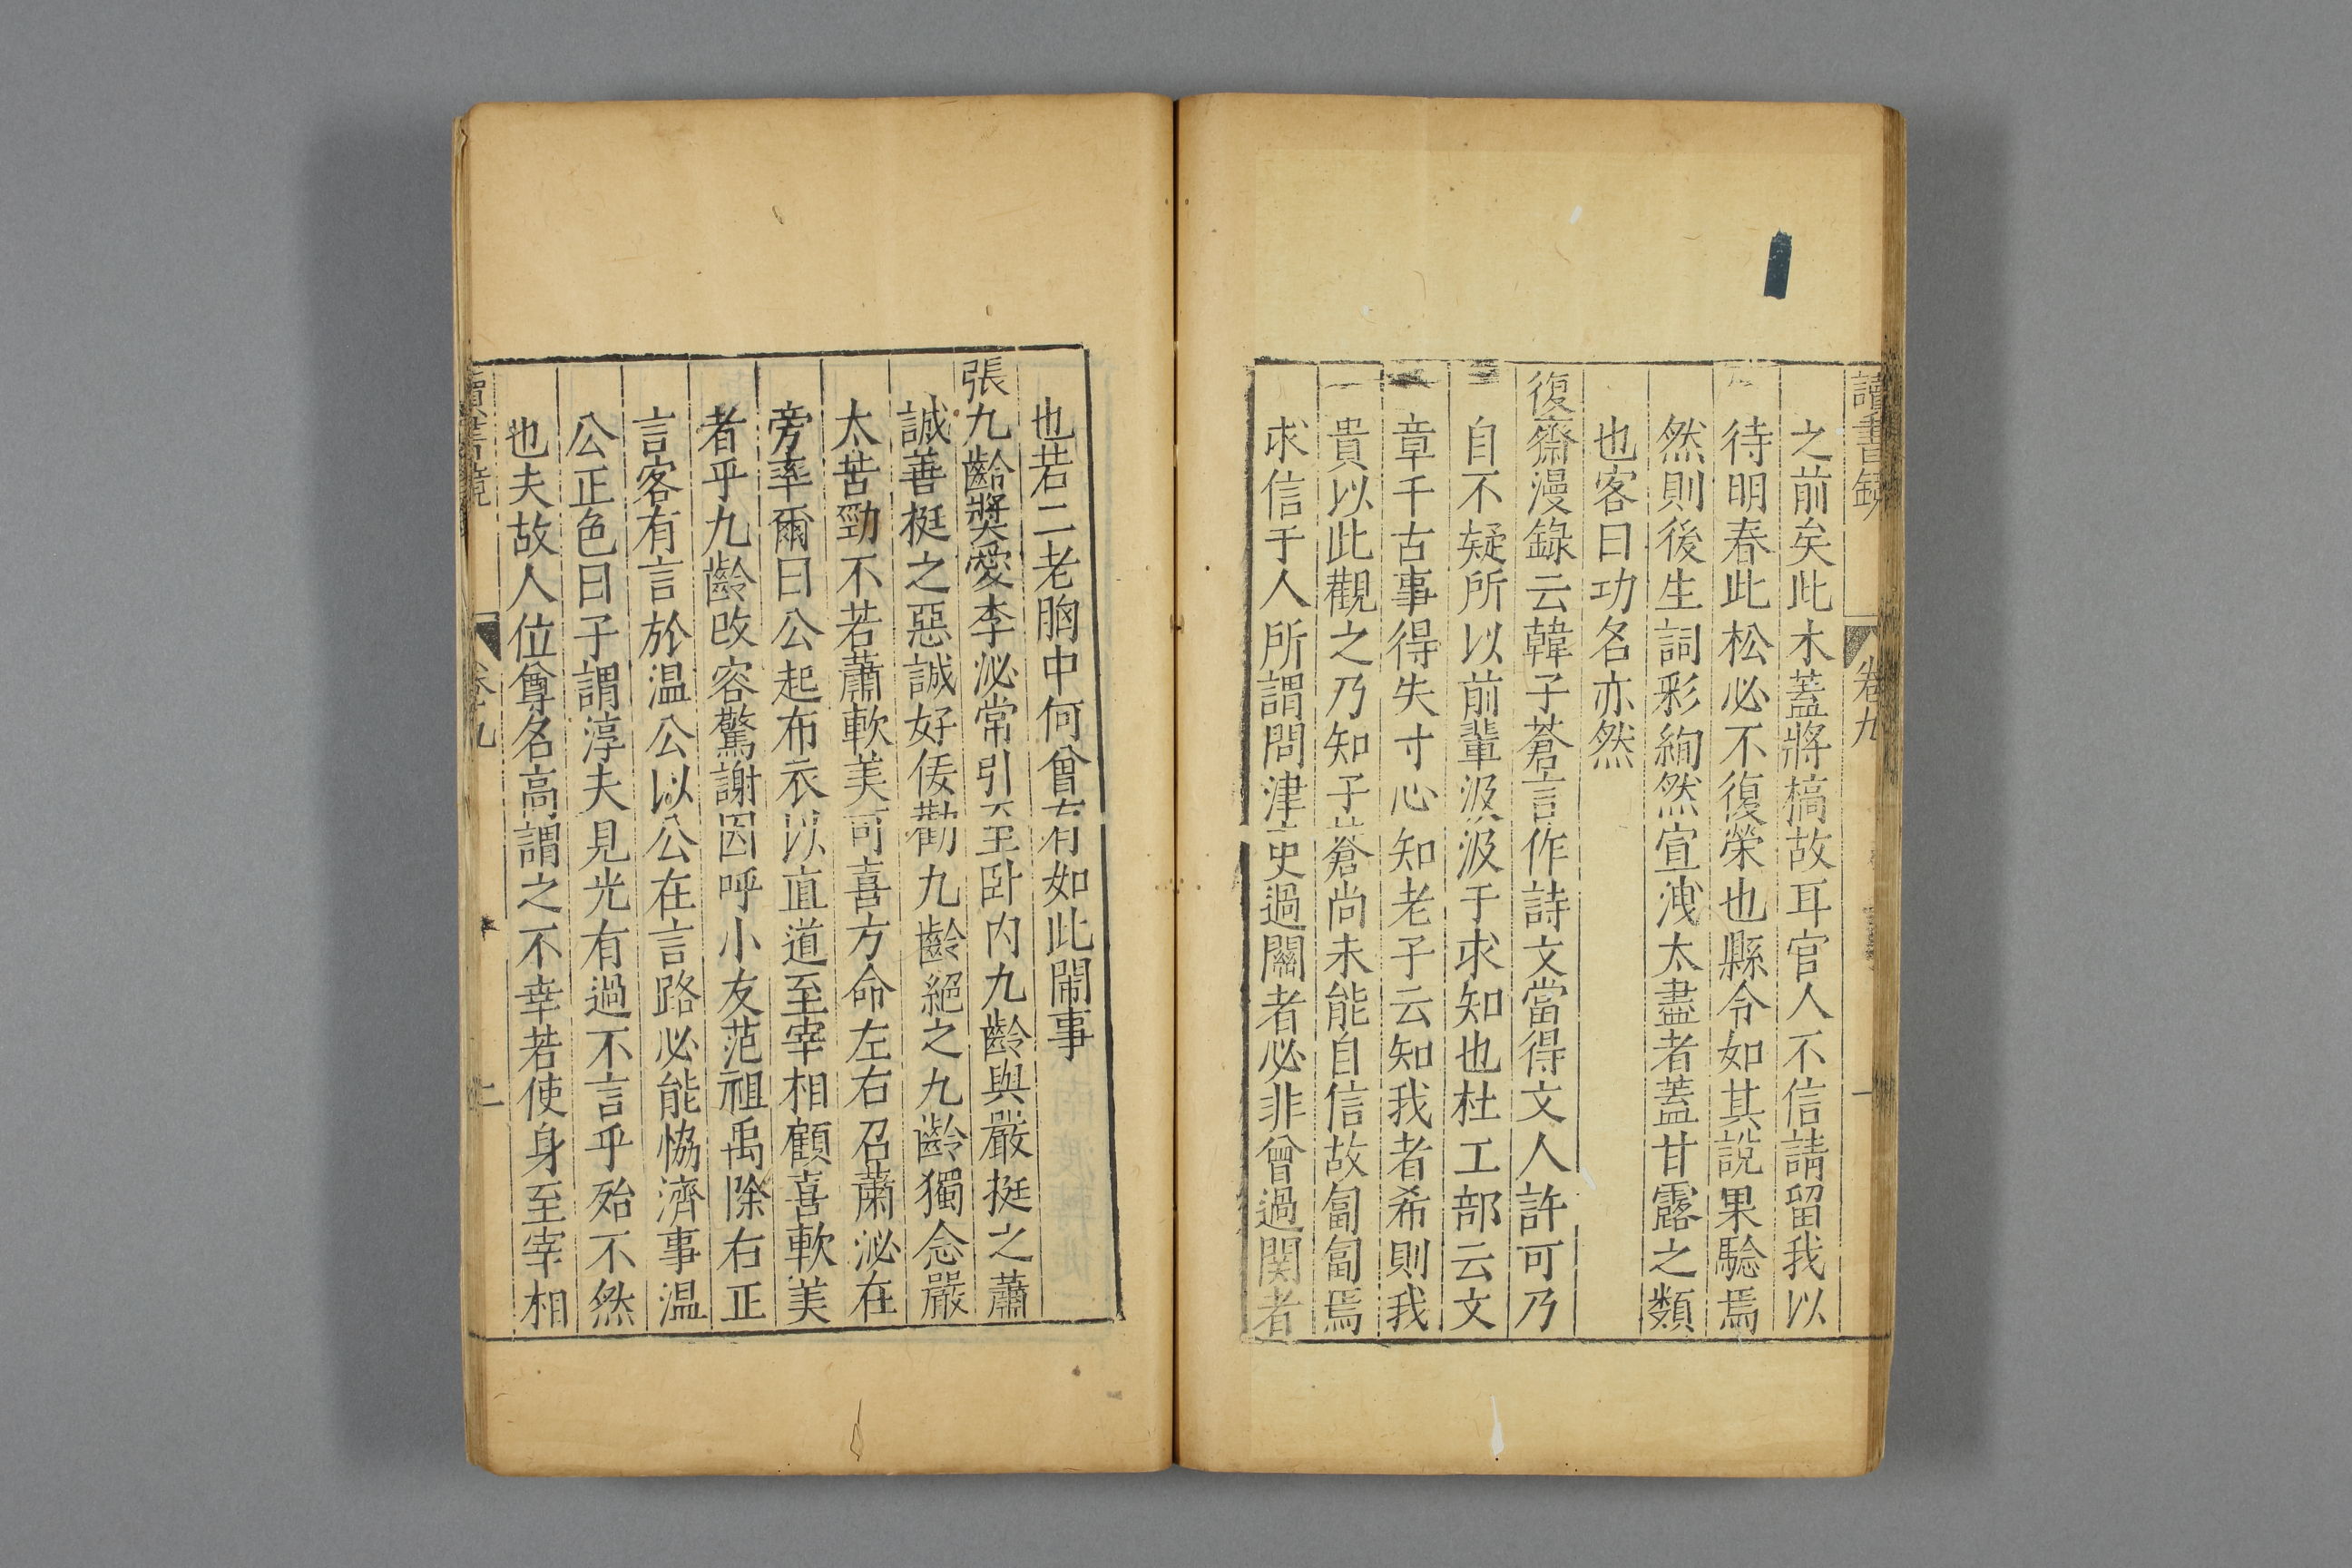 讀書鏡 卷九 一
之前矣此木蓋將槁故耳官人不信請留我以
待明春此松必不復榮也縣令如其說果騐焉
然則後生詞彩絢然宣洩太盡者蓋甘露之類
也客曰功名亦然
復齋漫錄云韓子蒼言作詩文當得文人許可乃
自不疑所以前輩汲汲于求知也杜工部云文
章千古事得失寸心知老子云知我者希則我
貴以此觀之乃知子蒼尚未能自信故匐匐焉
求信于人所謂問津吏過關者必非曾過関者
也若二老胸中何曾有如此鬧事
張九齡獎愛李泌常引至臥內九齡與嚴挺之蕭
誠善挺之惡誠好佞勸九齡絕之九齡獨念嚴
太苦勁不若蕭軟美可喜方命左右召蕭泌在
旁率爾曰公起布衣以直道至宰相顧喜軟美
者乎九齡改容驚謝因呼小友范祖禹除右正
言客有言於温公以公在言路必能恊濟事温
公正色曰子謂淳夫見光有過不言乎殆不然
也夫故人位尊名高謂之不幸若使身至宰相
讀書鏡 卷九 二